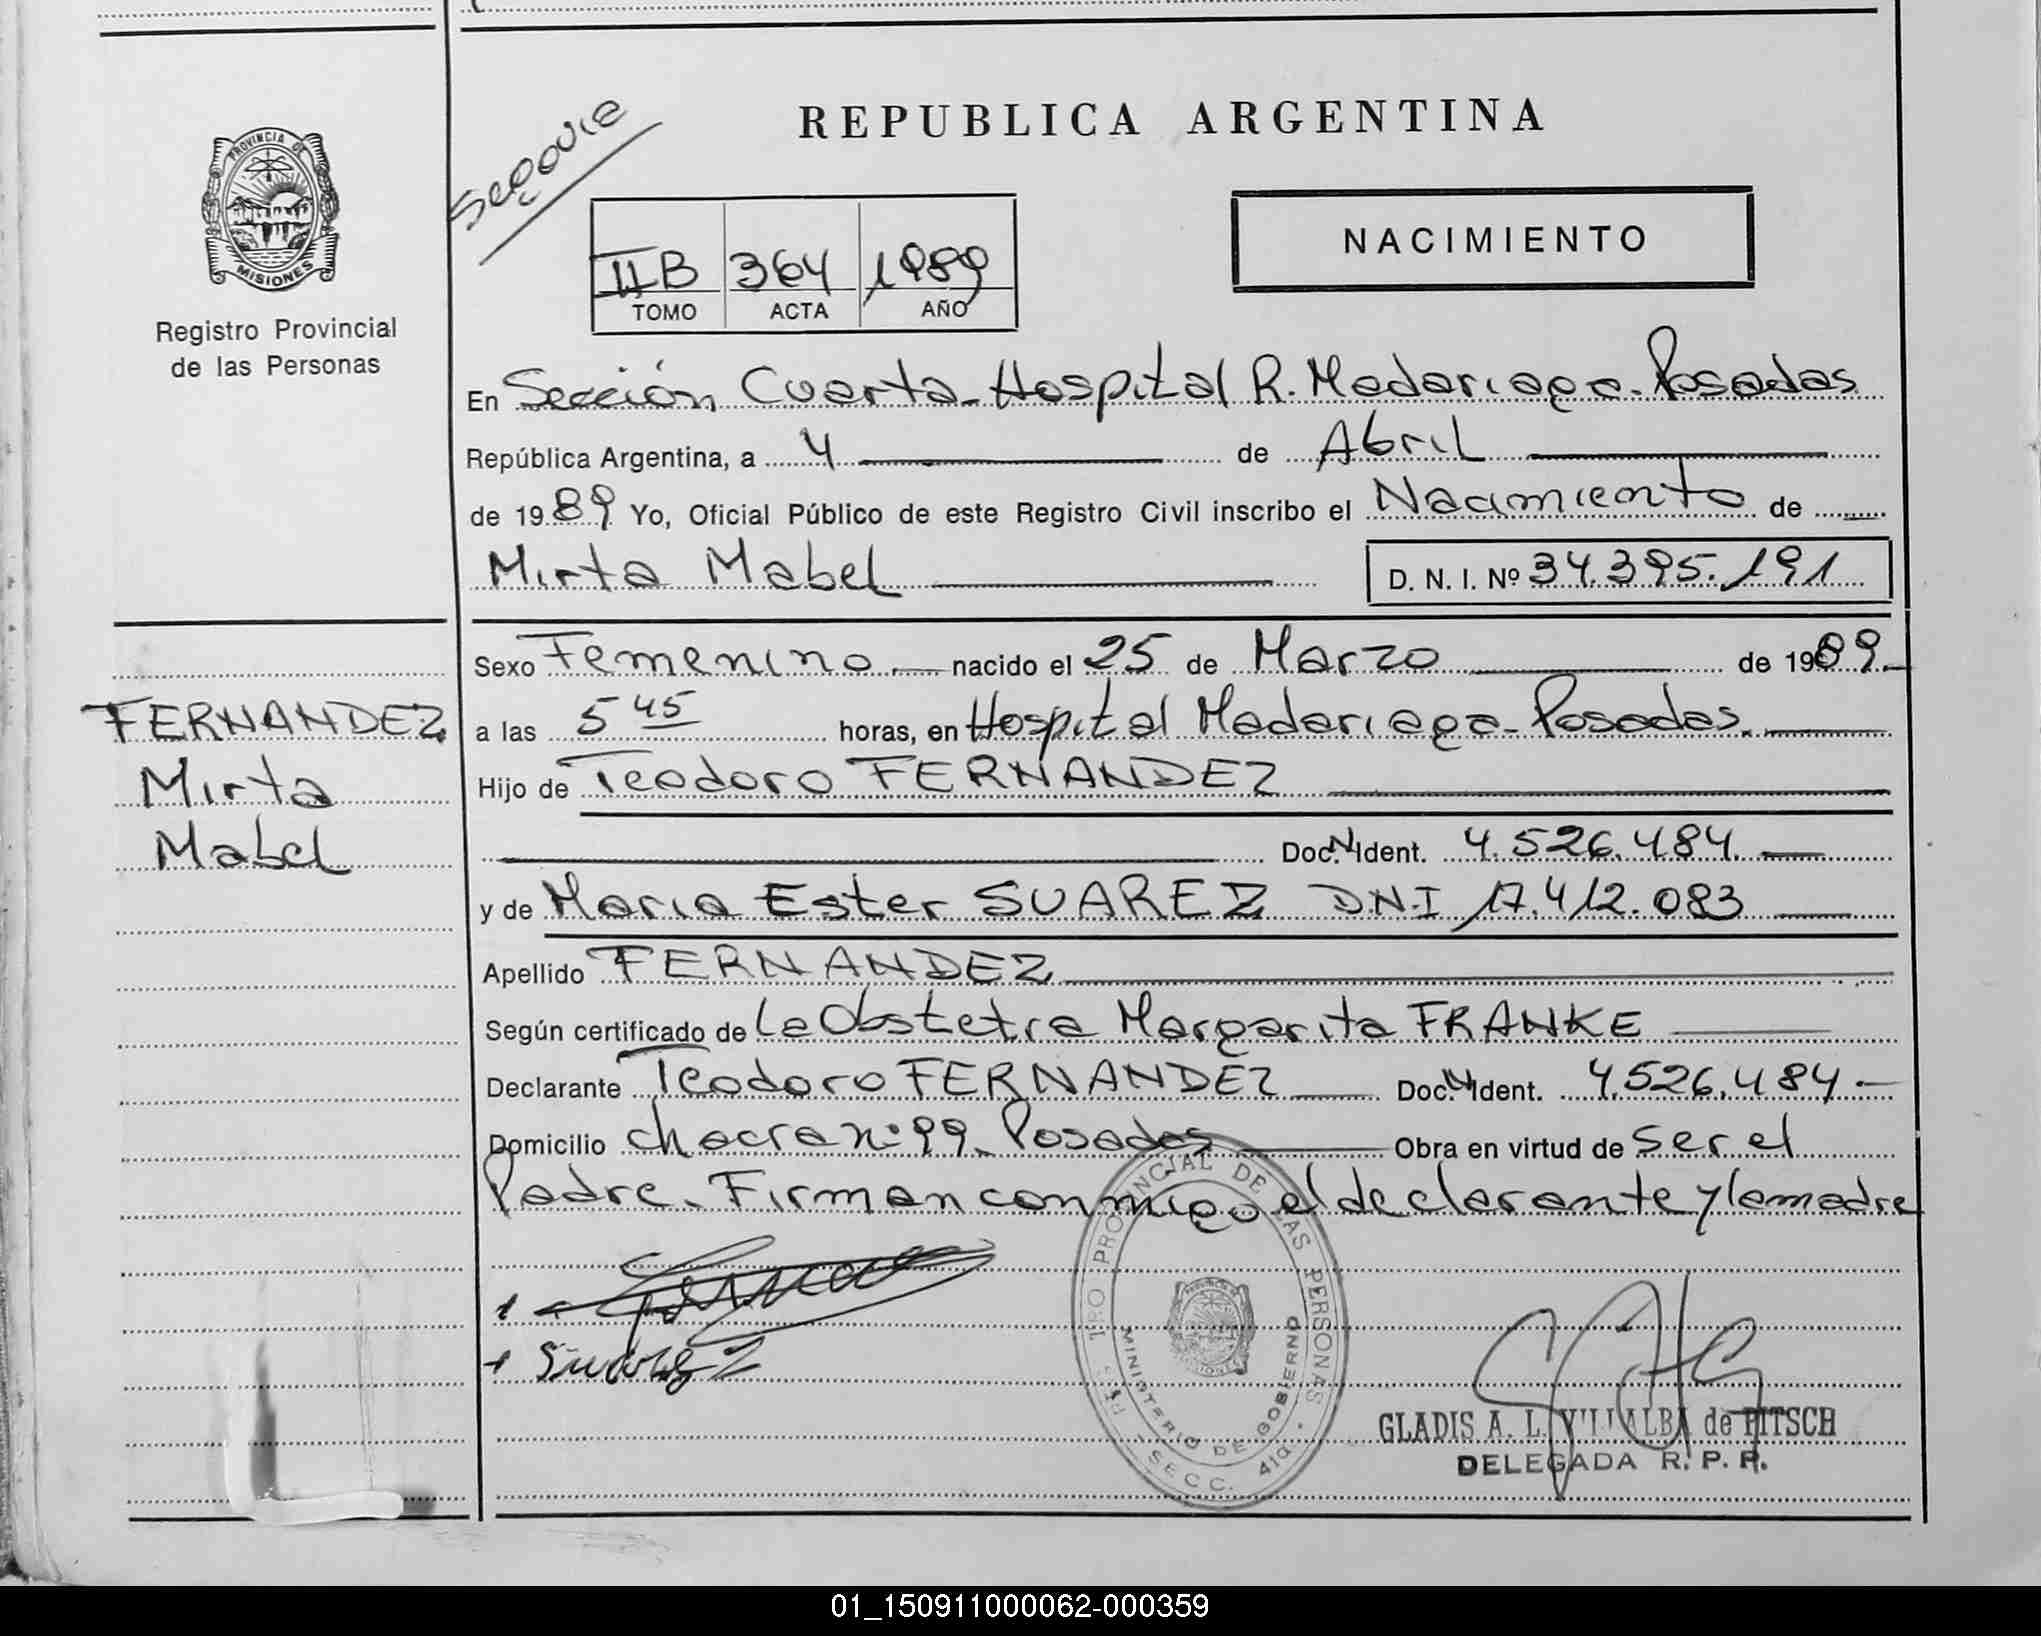 PROVINCIA DE
MISIONES
Registro Provincial
de las Personas
FERNANDEZ
Mirta
Mabel
Segovia
REPUBLICA ARGENTINA
IIB 364 1989
TOMO ACTA AÑO
NACIMIENTO
En Sección Cuarta - Hospital R. Madariaga - Posadas
República Argentina, a 4 de Abril
de 1989 Yo, Oficial Público de este Registro Civil inscribo el Nacimiento de
Mirta Mabel D. N. I. Nº 34.395.191
Sexo Femenino nacido el 25 de Marzo de 1989
a las 5 45 horas, en Hospital Madariaga - Posadas.
Hijo de Teodoro FERNANDEZ
Doc. N Ident. 4.526.484.
y de Maria Ester SUAREZ DNI 17.412.083
Apellido FERNANDEZ
Según certificado de La Obstetra Margarita FRANKE
Declarante Teodoro FERNANDEZ Doc. N Ident. 4.526.484 -
Domicilio chacra nº 99. Posadas Obra en virtud de ser el
Padre. Firman conmigo el declarante y la madre
Suarez
PROVINCIAL DE LAS PERSONAS
MINISTERIO DE GOBIERNO
SECC. 4ta
GLADIS A. L. VILLALBA de PITSCH
DELEGADA R. P. P.
01_150911000062-000359